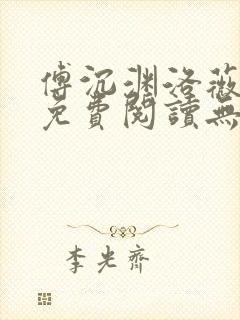 傅沉渊洛薇
免費閱讀無
李光齊